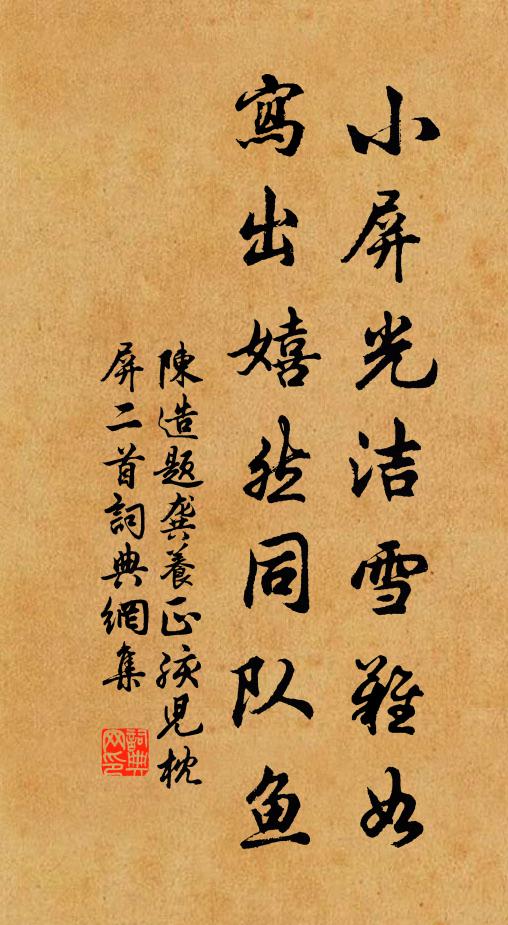 小屏光洁雪難如
寫出嬉然同队鱼
陳造題龔養正孩兒枕
屏二首詞典網集
詞典网印